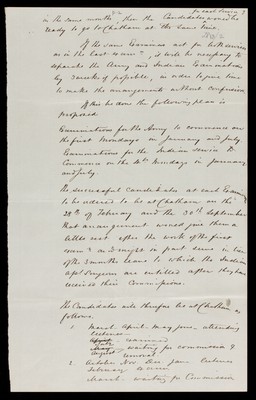 for each Service?
in the same month, then the Candidates would be
ready to go to Chatham at the same time.
If the same Examiners act for both services
as in the last Exam, it will be necessary to
separate the Army and Indian Examination
by 3 weeks if possible, in order to give time
to make the arrangements without confusion
If this be done the following plan is
proposed
Examinations for the Army to commence on
the first Mondays in January and July
Examinations for the Indian Service to
Commence on the 4th Mondays in January
and July.
The successful Candidates at each Exam
to be ordered to be at Chatham on the
28th of February and the 30th September
that arrangement would give them a
little rest after the work of the first
exam & in part serve in lieu
of the 3 months leave to which the Indian
Asst Surgeons are entitled after they have
received their Commissions.
The Candidates will therefore be at Chatham as
follows.
1 March April May June attending
Lectures
July examined
August waiting for commission &
removal
2 October Nov Dec Jan Lectures
February exam
March waiting for Commission